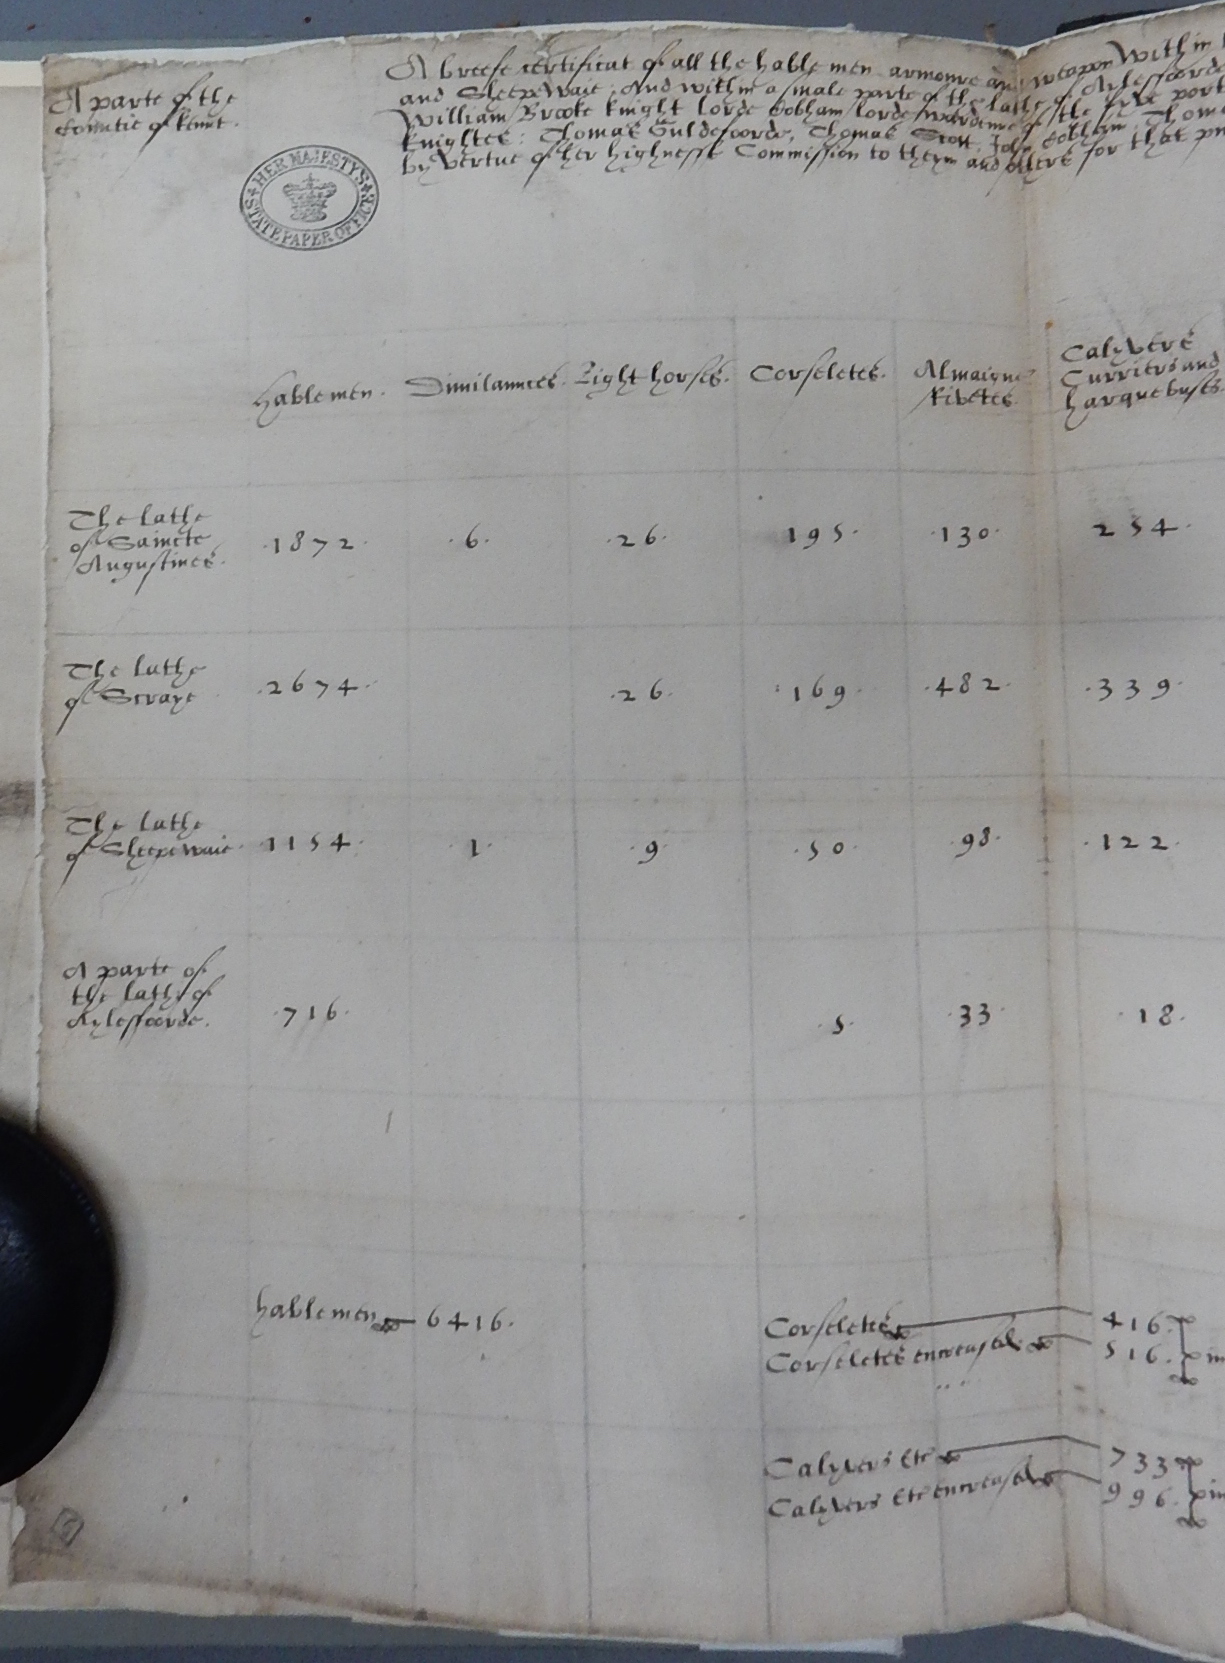 A parte of the
Countie of kent.
A breefe certificat of all the hable men armoure and weapon within
and Sheepwaie. And within a smale parte of the lathe of Aylesfoorde
William Brooke knight lorde Cobham lorde wardeine of the five port
knightes: Thomas Guldefoorde, Thomas Scott, John Cobham, Thom
by vertue of her highnesse Commission to theym and others for that
HER MAJESTYS
STATE PAPER OFFICE
hable men. Dimilaunces. Light horses. Corseletes. Almaigne Rivetes Calyvers Curriers and harquebuses.
The lathe
of Saincte
Augustines. .1872. .6. .26. 195. .130. 254.
The lathe
of Scraye .2674. .26. .169. .482. .339.
The lathe
of Sheepewaie .1154. .1. .9. .50. .98. .122.
A parte of
the lathe of
Aylesfoorde. .716. .5. .33. .18.
hable men 6416.
Corseletes 416.
Corseletes encreased 516.
Calyvers etc 733
Calyvers etc encreased 996.